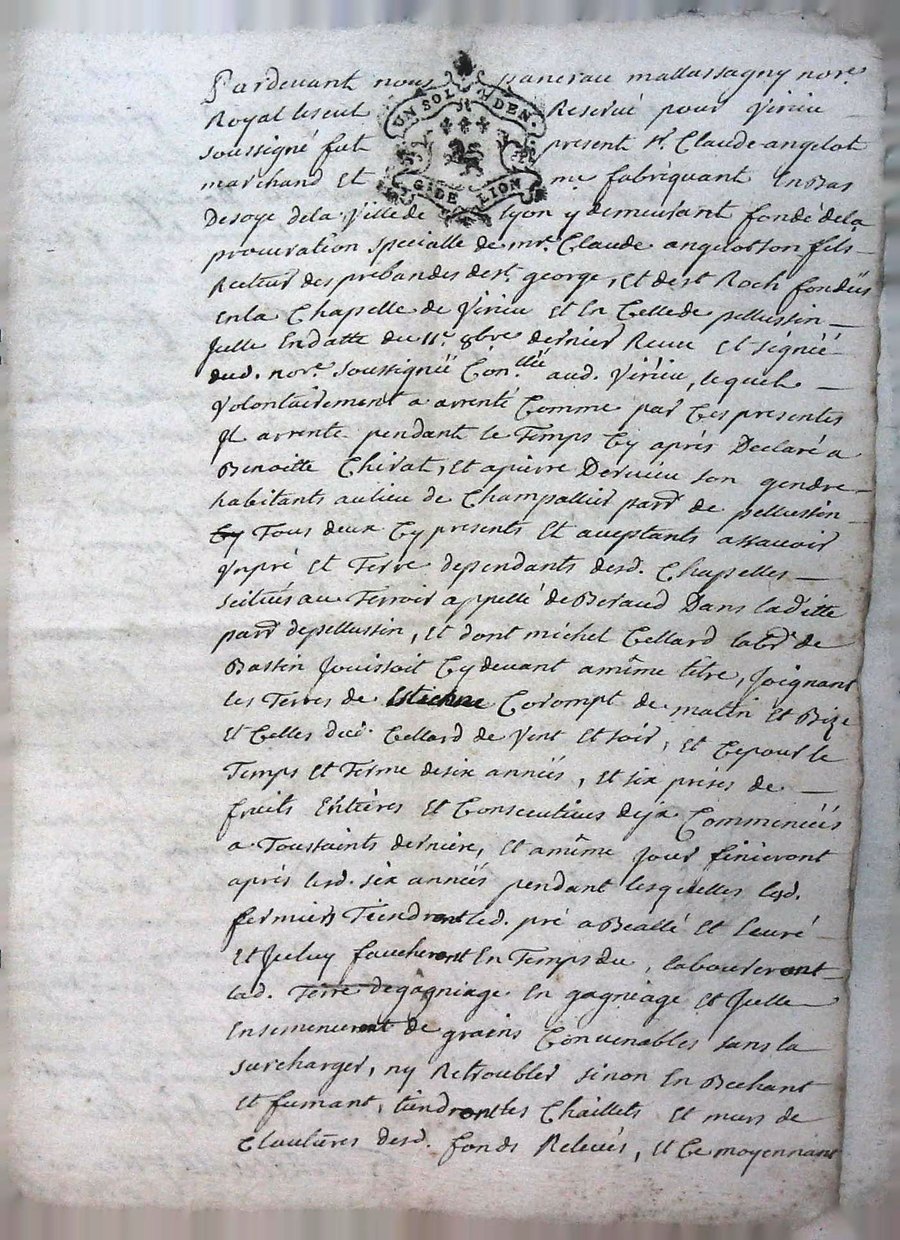 Pardevant nous pancrace mallassagny nore.
UN SOL DEN.
Royal Reservé pour Virieu
soussigné fut present sr. Claude angelot
marchand Et me. fabriquant En Bas
GDE LION
Desoye dela Ville de Lyon y demeurant fondé dela
procuration specialle de mre. Claude angelot son fils
Recteur des prebandes de st. george, Et de st Roch fondéés
En la Chapelle de Virieu Et En Celle de pellussin
Jelle En datte du 11e. 8bre dernier Receue Et signéé
dud. nore. soussigné aud. Virieu, lequel
Volontairement a arrenté Comme par Ces presentes
Jl arrente pendant le Temps Cy après Declaré a
Benoitte Chirat, Et a pierre Dervieu son gendre
habitants au lieu de Champallier parr. de pellussin
Cy Tous deux Cy presents Et aceptants assavoir
Vn pré Et Terre dependants desd. Chapelles
scitués au Terroir appellé de Beraud Dans laditte
parr. de pellussin, Et dont michel Cellard labr. de
Bassin Jouissoit Cy devant a même titre, Joignant
les Terres de Estienne Corompt de matin Et Bize
Et Celles dud. Cellard de Vent Et soir, Et Ce pour le
Temps Et Terme de six annéés, Et six prises de
fruits Entières Et Consecutives deja Commencéés
a Toussaints dernière, Et a même Jour finieront
après lesd. six annéés pendant lesquelles lesd.
fermiers Tiendront led. pré a Beallé Et Curé
Et Jceluy faucheront En Temps du, laboureront
lad. Terre de gagniage En gagniage Et Jcelle
Ensemenceront de grains Convenables sans la
surcharger, ny Retroubler sinon En Bechant
Et fumant, tiendront les Chaillets Et murs de
Cloutures desd. fonds Relevés, Et Ce moyennant